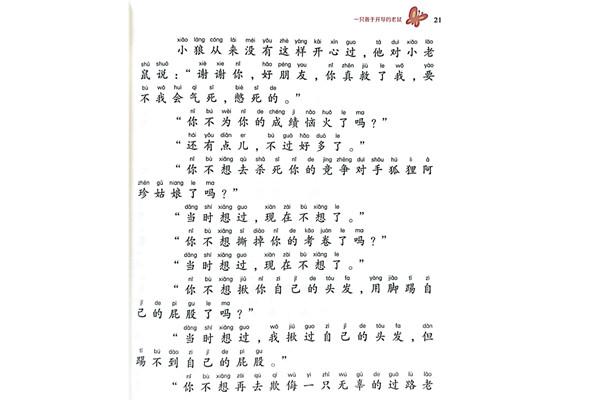 一只善于开导的老鼠 21
xiǎo láng cóng lái méi yǒu zhè yàng kāi xīn guo tā duì xiǎo lǎo
小狼从来没有这样开心过，他对小老
shǔ shuō xiè xie nǐ hǎo péng you nǐ zhēn jiù le wǒ yào
鼠说：“谢谢你，好朋友，你真救了我，要
bù wǒ huì qì sǐ biē sǐ de
不我会气死，憋死的。”
nǐ bú wèi nǐ de chéng jì nǎo huǒ le ma
“你不为你的成绩恼火了吗？”
hái yǒu diǎn er bú guò hǎo duō le
“还有点儿，不过好多了。”
nǐ bù xiǎng qù shā sǐ nǐ de jìng zhēng duì shǒu hú li ā
“你不想去杀死你的竞争对手狐狸阿
zhēn gū niang le ma
珍姑娘了吗？”
dāng shí xiǎng guo xiàn zài bù xiǎng le
“当时想过，现在不想了。”
nǐ bù xiǎng sī diào nǐ de kǎo juàn le ma
“你不想撕掉你的考卷了吗？”
dāng shí xiǎng guo xiàn zài bù xiǎng le
“当时想过，现在不想了。”
nǐ bù xiǎng jiū nǐ zì jǐ de tóu fa yòng jiǎo tī zì
“你不想揪你自己的头发，用脚踢自
jǐ de pì gu le ma
己的屁股了吗？”
dāng shí xiǎng guo wǒ jiū guo zì jǐ de tóu fa dàn
“当时想过，我揪过自己的头发，但
tī bú dào zì jǐ de pì gu
踢不到自己的屁股。”
nǐ bù xiǎng zài qù qī wǔ yì zhī wú gū de guò lù lǎo
“你不想再去欺侮一只无辜的过路老